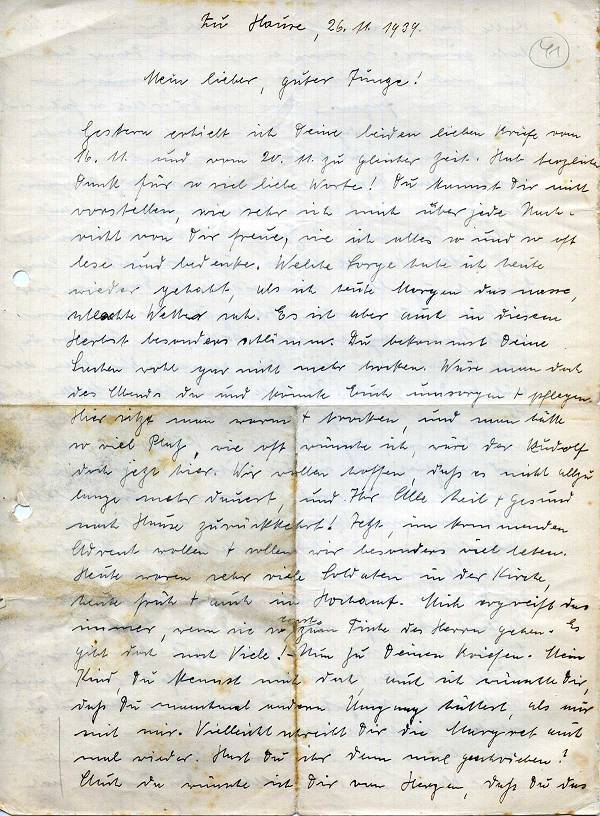 Zu Hause, 26.11.1939.
41
Mein lieber, guter Junge!
Gestern erhielt ich Deine beiden lieben Briefe vom
16.11. und vom 20.11. zu gleicher Zeit. Hab herzlichen
Dank für so viel liebe Worte! Du kannst Dir nicht
vorstellen, wie sehr ich mich über jede Nach-
richt von Dir freue, wie ich alles so und so oft
lese und bedenke. Welche Sorge habe ich heute
wieder gehabt, als ich heute Morgen das nasse,
schlechte Wetter sah. Es ist aber auch in diesem
Herbst besonders schlimm. Du bekommst Deine
Sachen wohl gar nicht mehr trocken. Wäre man doch
des Abends da und könnte Euch umsorgen + pflegen.
Hier sitzt man warm + trocken, und man hätte
so viel Platz, wie oft wünschte ich, wäre der Rudolf
doch jetzt hier. Wir wollen hoffen, daß es nicht allzu
lange mehr dauert, und Ihr Alle heil + gesund
nach Hause zurückkehrt! Jetzt, im kommenden
Advent wollen + sollen wir besonders viel beten.
Heute waren sehr viele Soldaten in der Kirche,
heute früh + auch im Hochamt. Mich ergreift das
immer, wenn sie so zum Tische des Herrn gehen. Es
gibt doch noch Viele! - Nun zu Deinen Briefen. Mein
Kind, Du kennst mich doch, auch ich wünschte Dir,
daß Du manchmal anderen Umgang hättest, als nur
mit mir. Vielleicht schreibt Dir die Margret auch
mal wieder. Hast Du ihr denn mal geschrieben?
Auch da wünschte ich Dir von Herzen, daß Du das